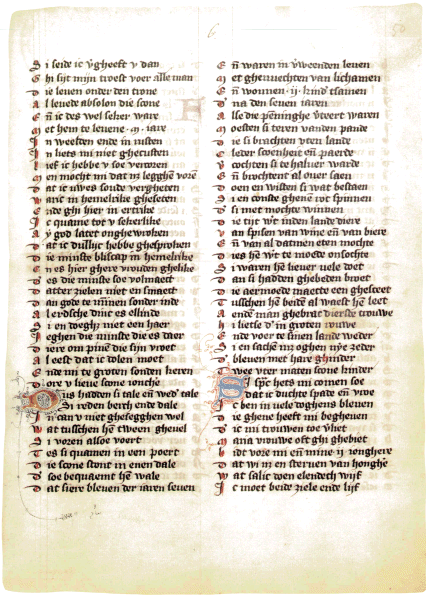 6
50
Si seide ic v̄gheeft v dan
Ghi sijt mijn troest voer alle man
Die leuen onder den trone
Al leuede absolon die scone
En̄ ic des wel seker ware
Met hem te leuene · m · iare
In weelden ende in rusten
In liets mi niet ghecusten
Lief ic hebbe v soe vercoren
Men mocht mi dat niet legghē vorē
Dat ic uwes soude vergheten
Waric in hemelrike gheseten
Ende ghi hier in ertrike
Ic quame tot v sekerlike
Ay god latet onghewroken
Dat ic dullijc hebbe ghesproken
Die minste bliscap in hemelrike
En es hier ghere vrouden ghelike
Daer es die minste soe volmaect
Datter zielen niet en smaect
Dan gode te mīnen sonder inde
Al erdsche dinc es ellinde
Si en doeghᵗ niet een haer
Jeghen die minste die es daer
Diere om pinē die sijn vroet
Al eest dat ic dolen moet
Ende mi te groten sonden keren
Dore v lieue scone ionchē
Dus hadden si tale en̄ wedᵉ tale
Si reden berch ende dale
In can v niet ghesegghen wel
Wat tusschen hē tween ghevel
Si voren alsoe voert
Tes si quamen in een poert
Die scone stont in enen dale
Daer soe bequaemt hē wale
Dat siere bleuen der iaren seuen
En̄ waren in v̄weenden leuen
Met ghenuechten van lichamen
En̄ wonnen · ij · kindᵉ tsamen
Daer na den seuen iaren
Alse die pēninghe v̄teert waren
Moesten si teren vanden pande
Die si brachten vten lande
Cleder scoenheit en̄ paerde
Vcochten si te haluer warde
En̄ brochtent al ouer saen
Doen en wisten si wat bestaen
Si en conste ghenē roc spinnen
Daer si met mochte winnen
Die tijt wert inden lande diere
Van spisen van wine en̄ van biere
En̄ van al datmen eten mochte
Dies hē wert te moede onsochte
Si waren hē lieuer vele doet
Dan si hadden ghebeden broet
Die aermoede maecte een ghesceet
Tusschen hē beidē al waest hē leet
Aende man ghebrac dierste trouwe
Hi lietse daer in groten rouwe
Ende voer te sinen lande weder
Si en sachē mᵗ oghen nye zeder
Daer bleuen met hare ghinder
Twee vter maten scone kinder
Si sprac hets mi comen soe
Dat ic duchte spade en̄ vroe
Ic ben in vele doghens bleuen
Die ghene heeft mi begheuen
Daer ic mi trouwen toe v̄liet
Maria vrouwe oft ghi ghebiet
Bidt vore mi en̄ mine · ij · ionghere
Dat wi niet en steruen van honghere
Wat salic doen elendech wijf
Ic moet beide ziele ende lijf